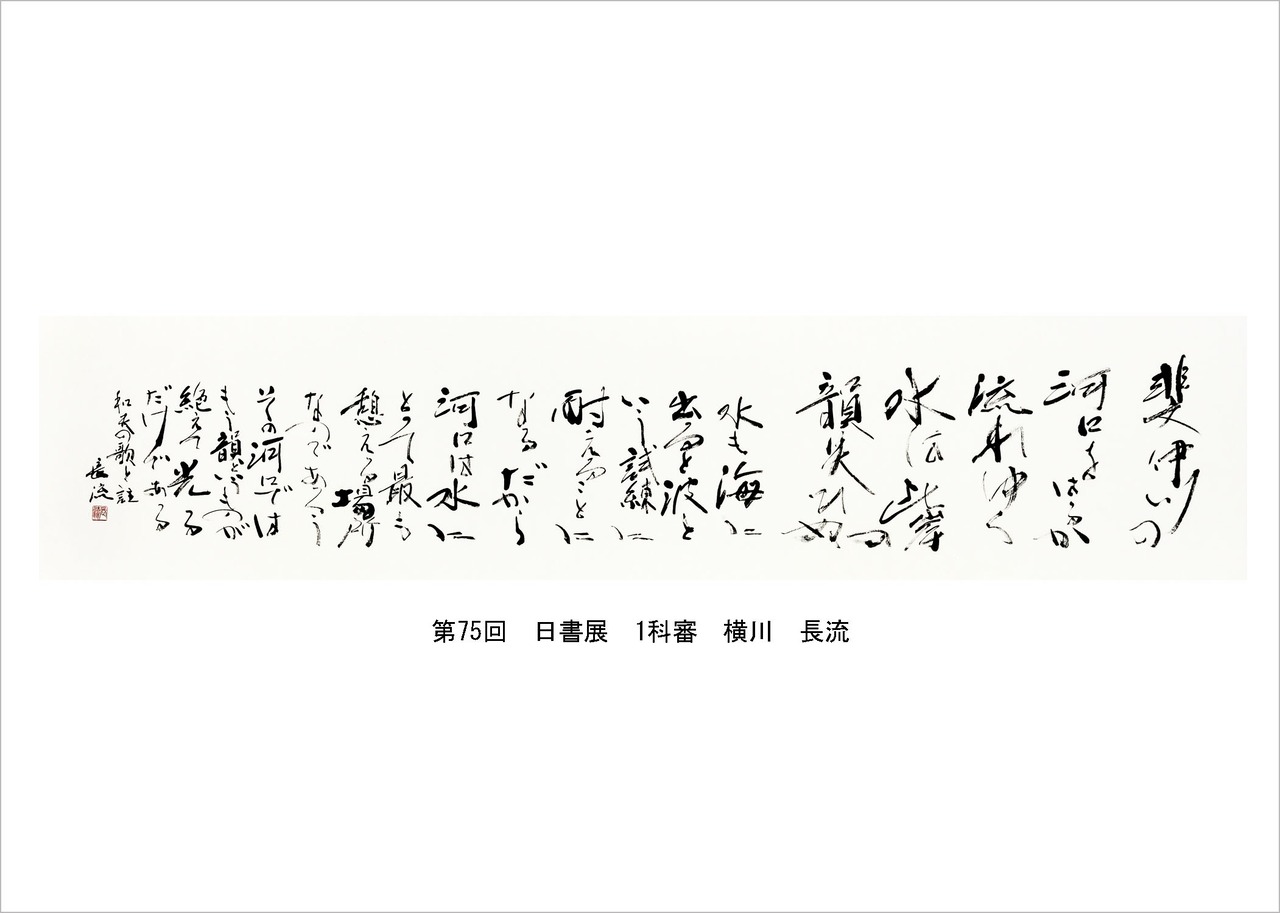 斐伊川の
河口をはるか
流れゆく
水は此岸の
韻失ひぬ
水も海に
出ると波と
いう試練に
耐えることに
なるだから
河口は水に
とって最も
憩える場所
なのであろう
その河口では
もう韻というものが
絶えて光る
だけである
の歌と註
長流
第75回　日書展　1科審　横川　長流